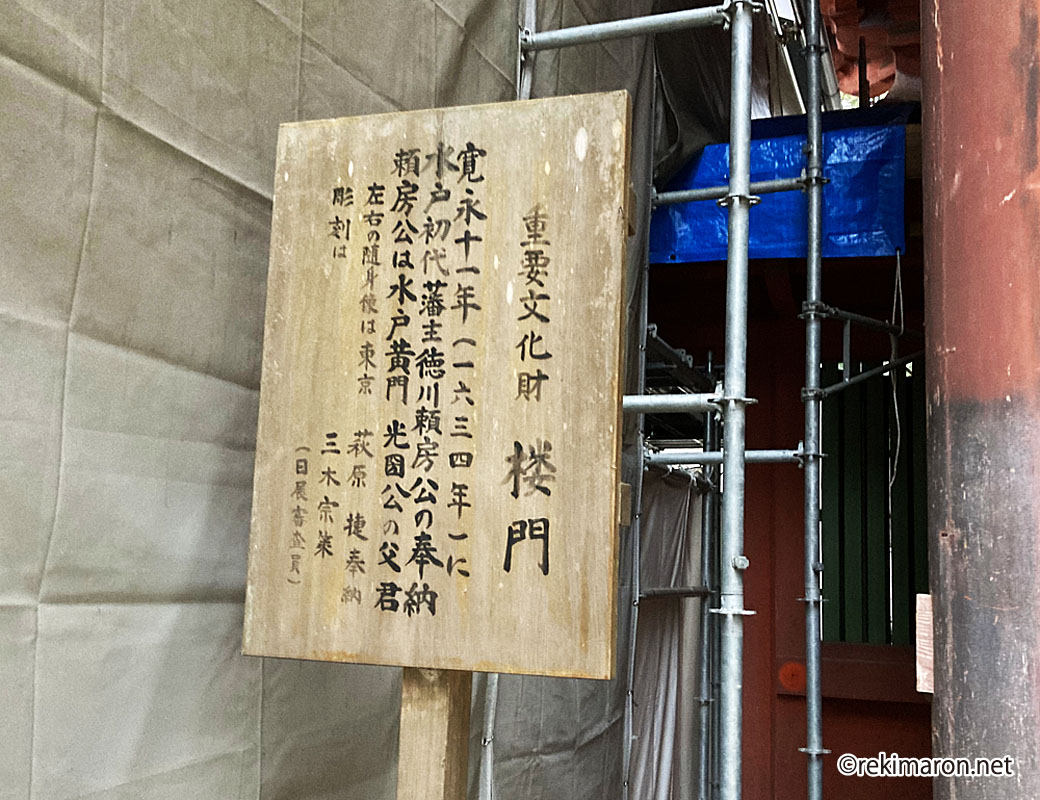 重要文化財 楼門
寛永十一年(一六三四年)に
水戸初代藩主徳川頼房公の奉納
頼房公は水戸黄門 光圀公の父君
左右の随身像は東京 萩原 捷奉納
彫刻は 三木宗策
(日展審査員)
©rekimaron.net